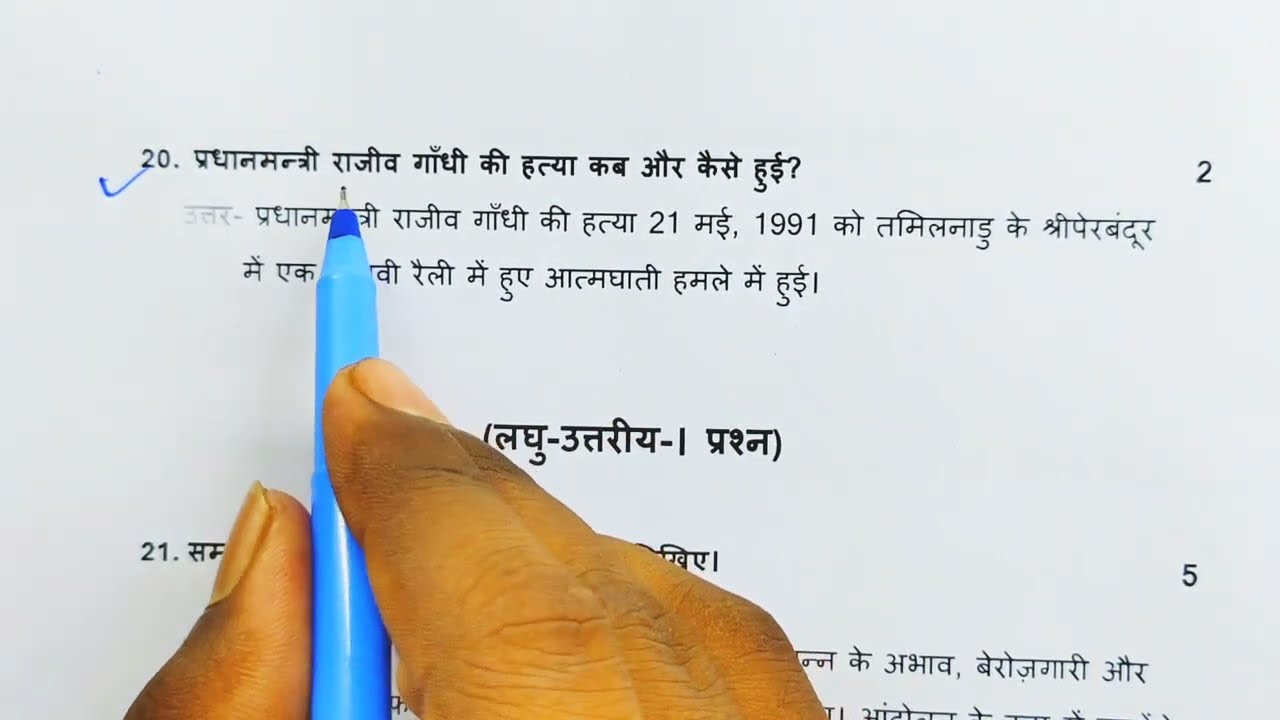 20. प्रधानमन्त्री राजीव गाँधी की हत्या कब और कैसे हुई? 2
उत्तर- प्रधानमन्त्री राजीव गाँधी की हत्या 21 मई, 1991 को तमिलनाडु के श्रीपेरबंदूर
में एक रैली में हुए आत्मघाती हमले में हुई।
(लघु-उत्तरीय-I प्रश्न)
21. 5
के अभाव, बेरोज़गारी और